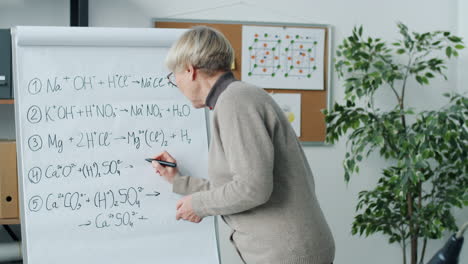 ① Na⁺OH⁻ + H⁺Cl⁻ → Na⁺Cl⁻
② K⁺OH⁻ + H⁺NO₃⁻ → Na⁺NO₃⁻ + H₂
③ Mg + 2H⁺Cl⁻ → Mg²⁺(Cl⁻)₂ + H₂
④ Ca²⁺O²⁻ + (H⁺)₂ SO₄²⁻ →
⑤ Ca²⁺CO₃²⁻ + (H⁺)₂ SO₄²⁻ →
→ Ca²⁺SO₄²⁻ +